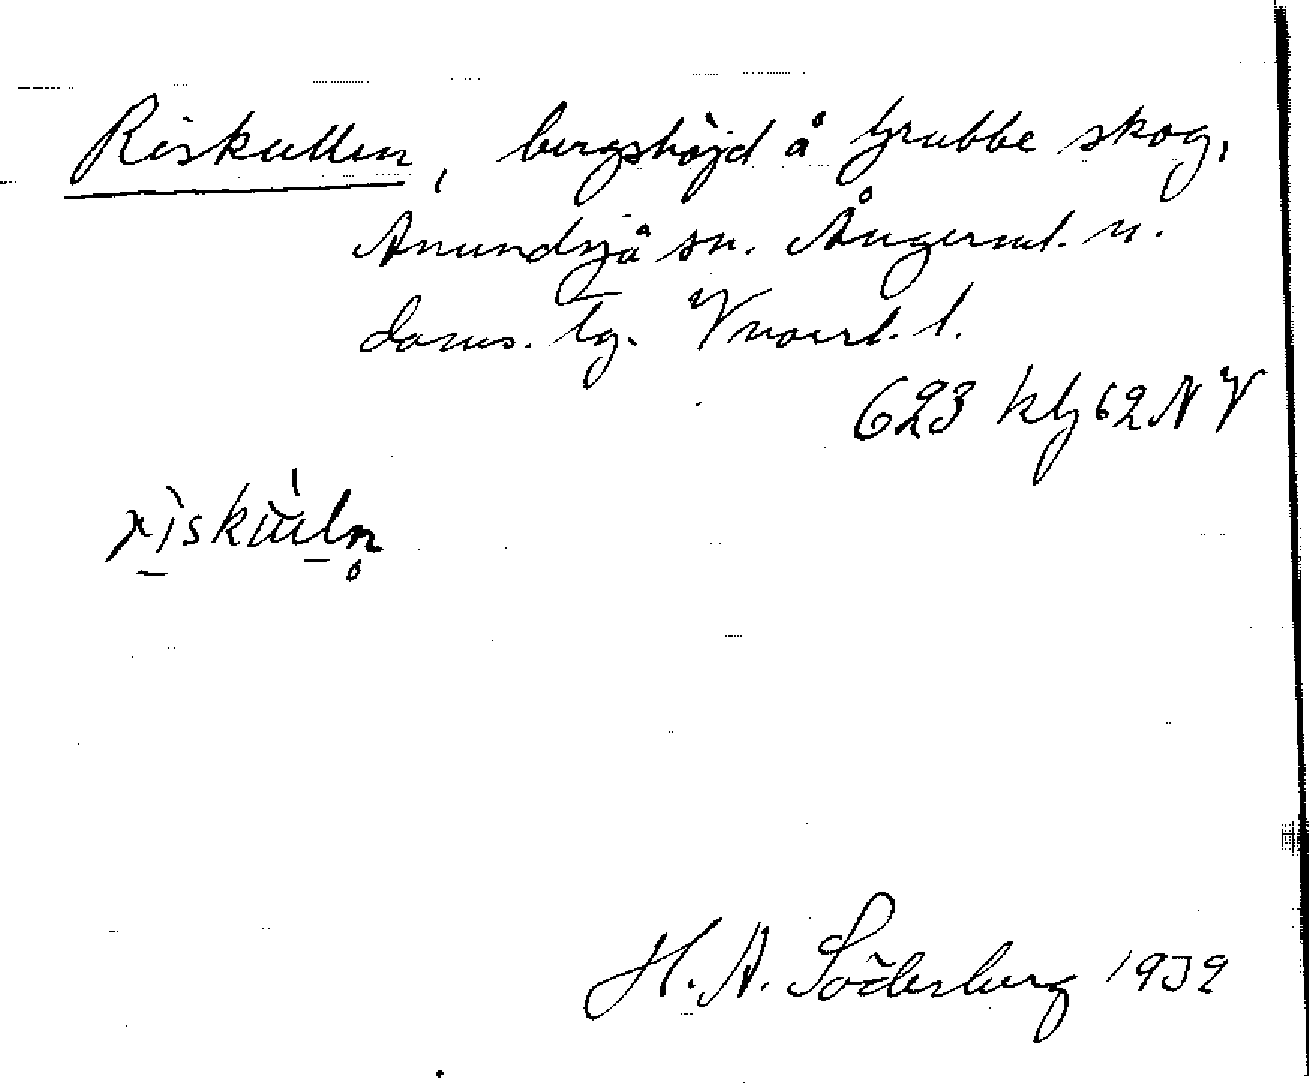 Riskullen, bergshöjd å Grubbe skog,
Anundsjö sn. Ångerml. n.
doms. tg. Vnorrl. l.
623 kbj 62 NV
rı̀skùln̥
H. A. Söderberg 1939